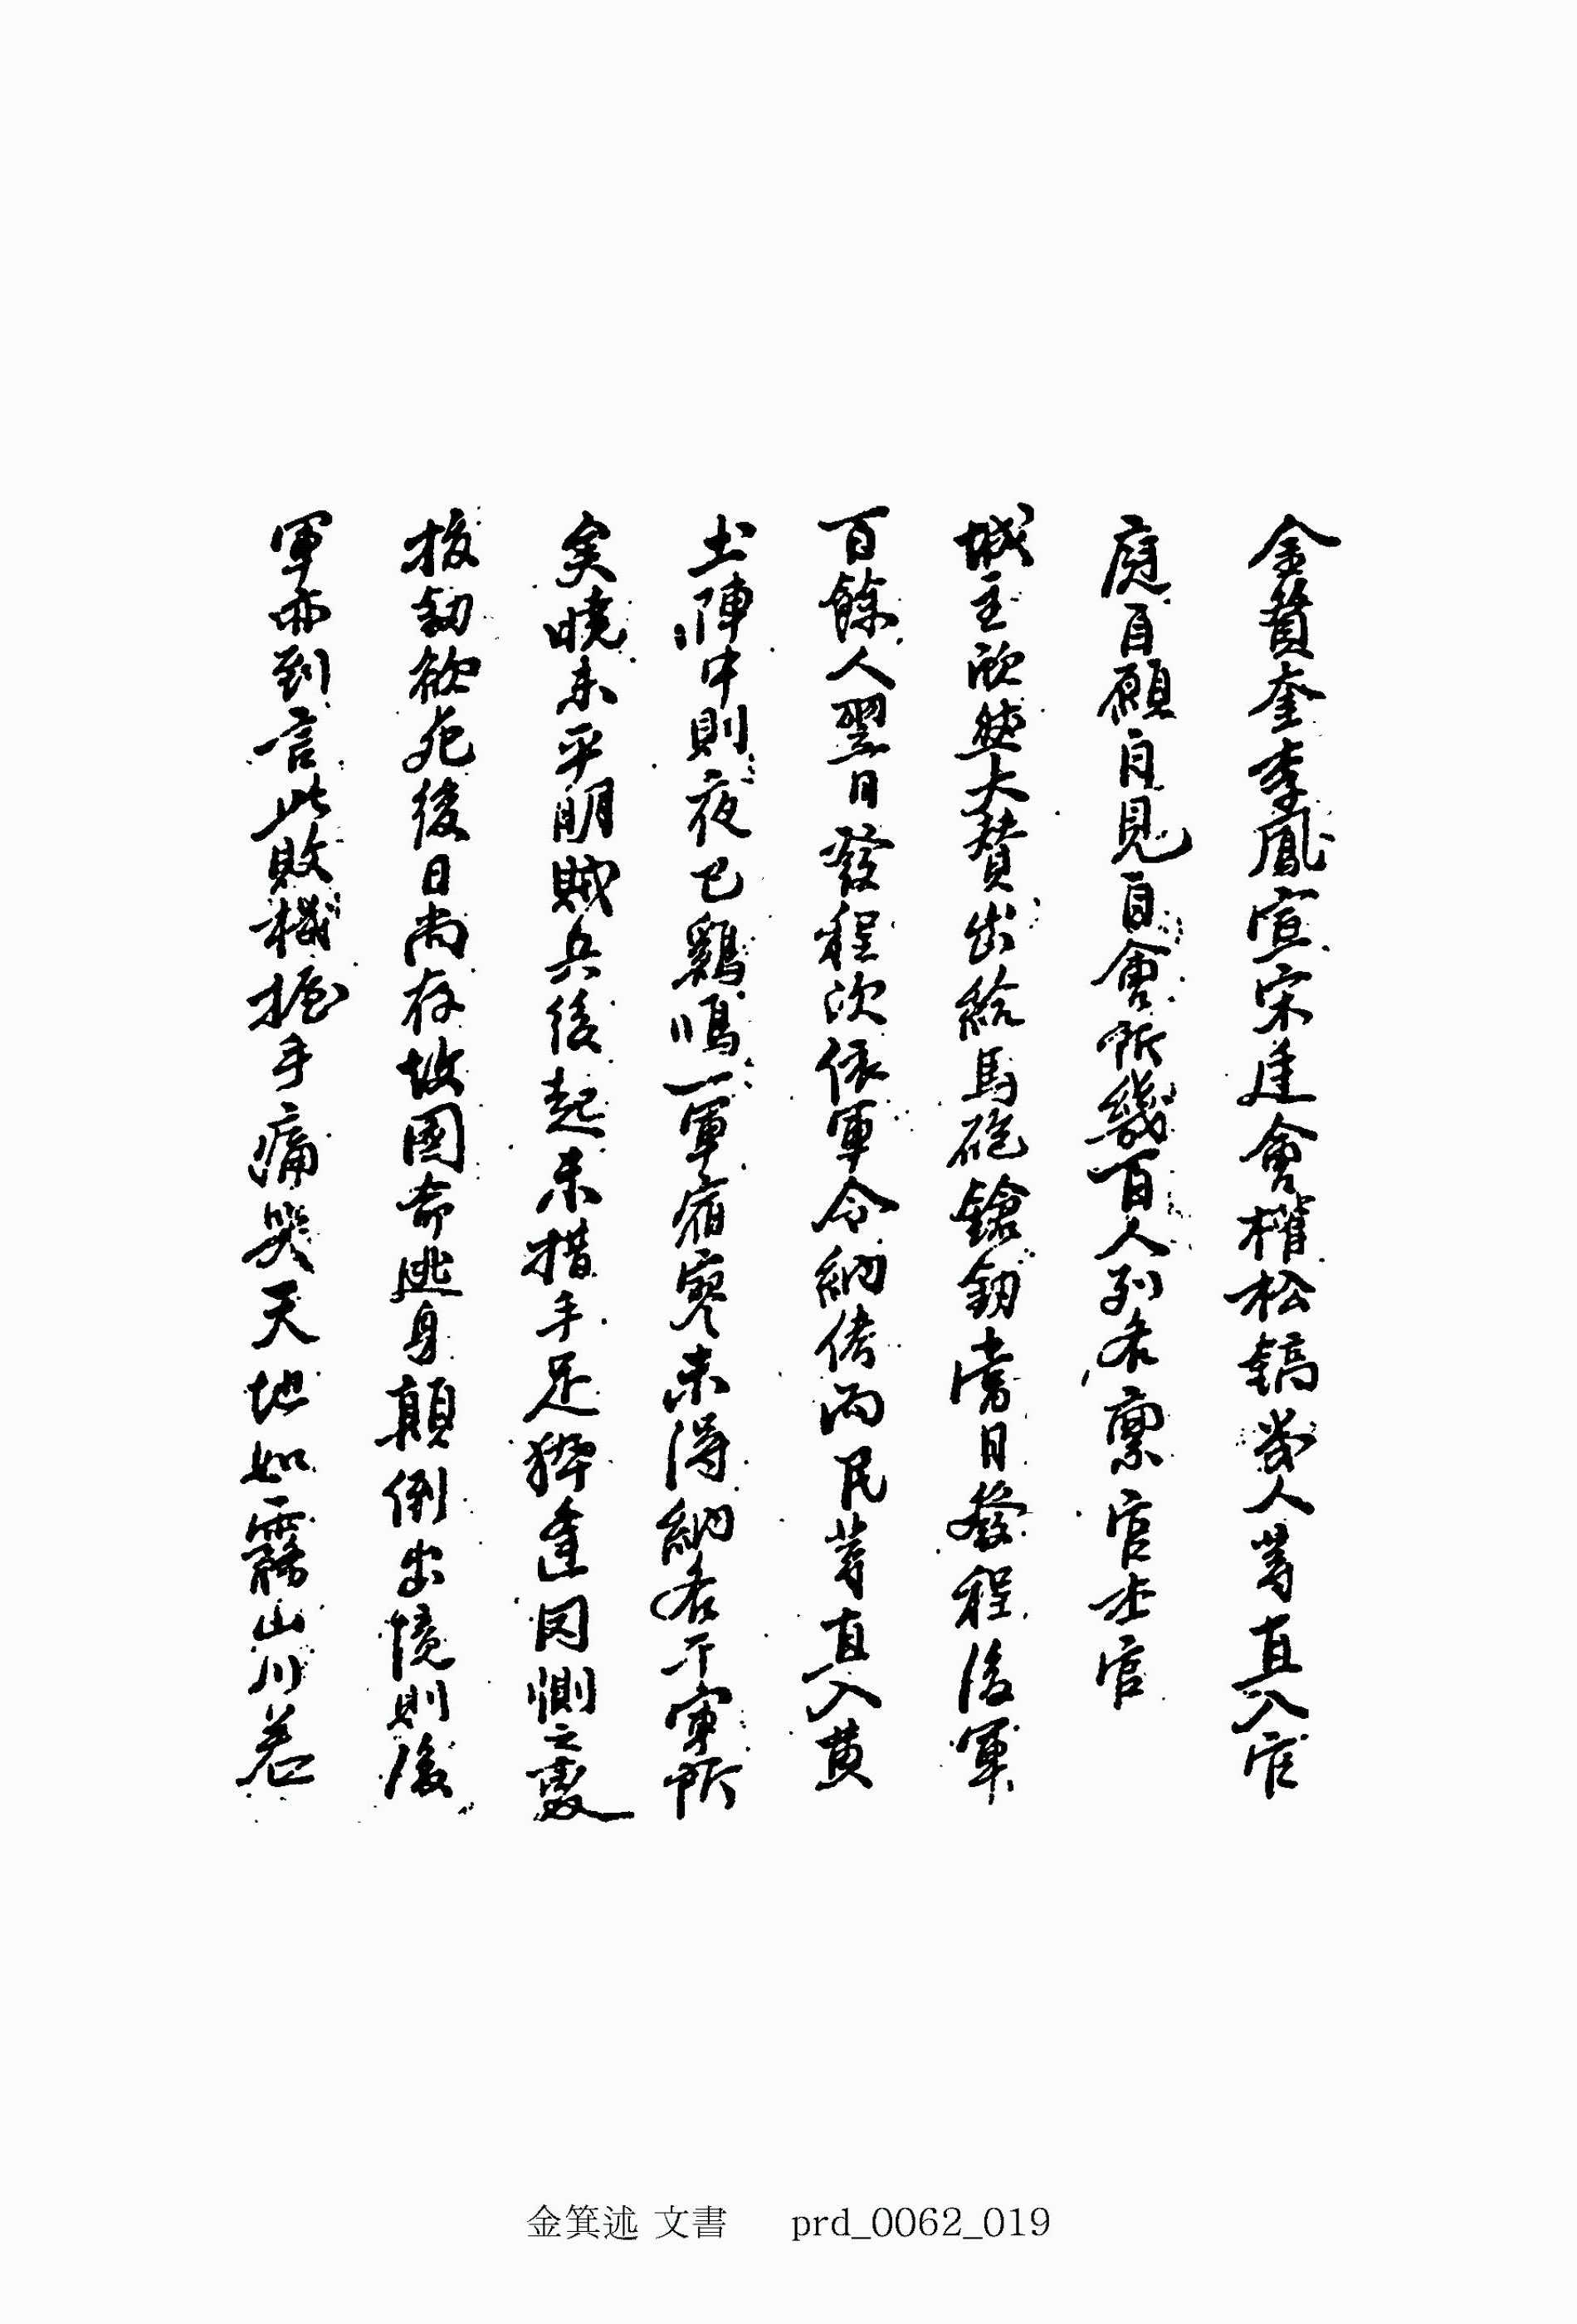 金賛奎李鳳宣宋廷會權松鎬等人等直入官
庭自願自見自會所幾百人列名禀官主官
城主欣然大贊出給馬砲鎗釰當日發程後軍
百餘人翌日發程次依軍令納侤而民等直入黃
土陣中則夜已鷄鳴一軍宿寥未得納名于軍所
矣曉未平明賊兵後起未措手足猝逢罔惻之變
拔釰欲死後日尚存故國奇逃身顛倒出境則後
軍亦到言此敗機握手痛哭天地如霧山川若
金箕述 文書 prd_0062_019